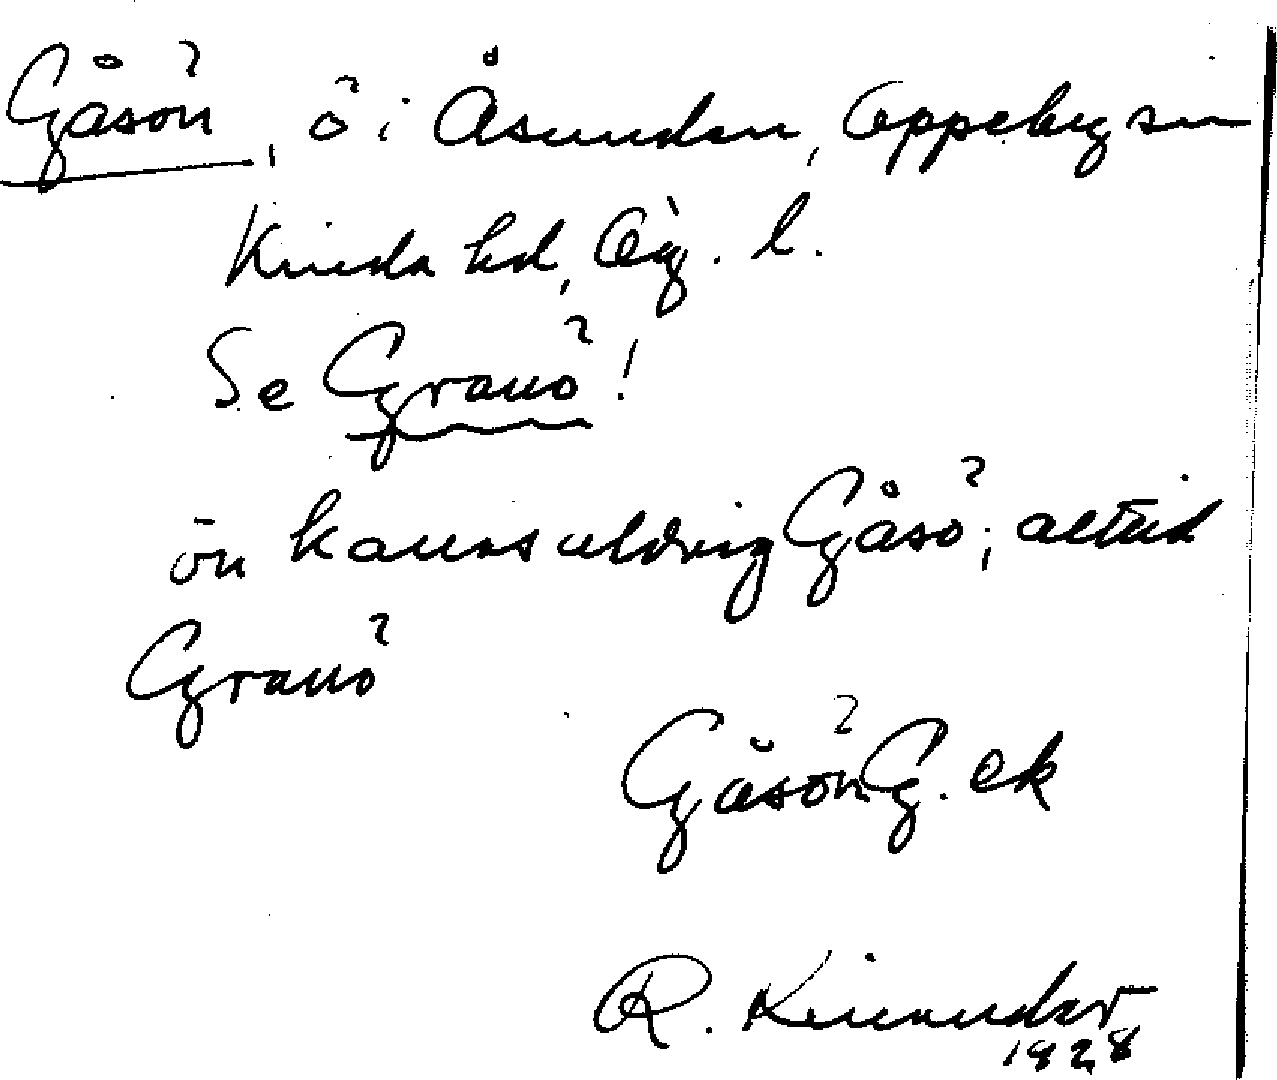 Gåsön, ö i Åsunden, Oppeby sn
Kinda hd, Ög. l.
Se Granö!
ön kallas aldrig Gåsö; alltid
Granö
Gåsön G. ek
R. Kinander
1928